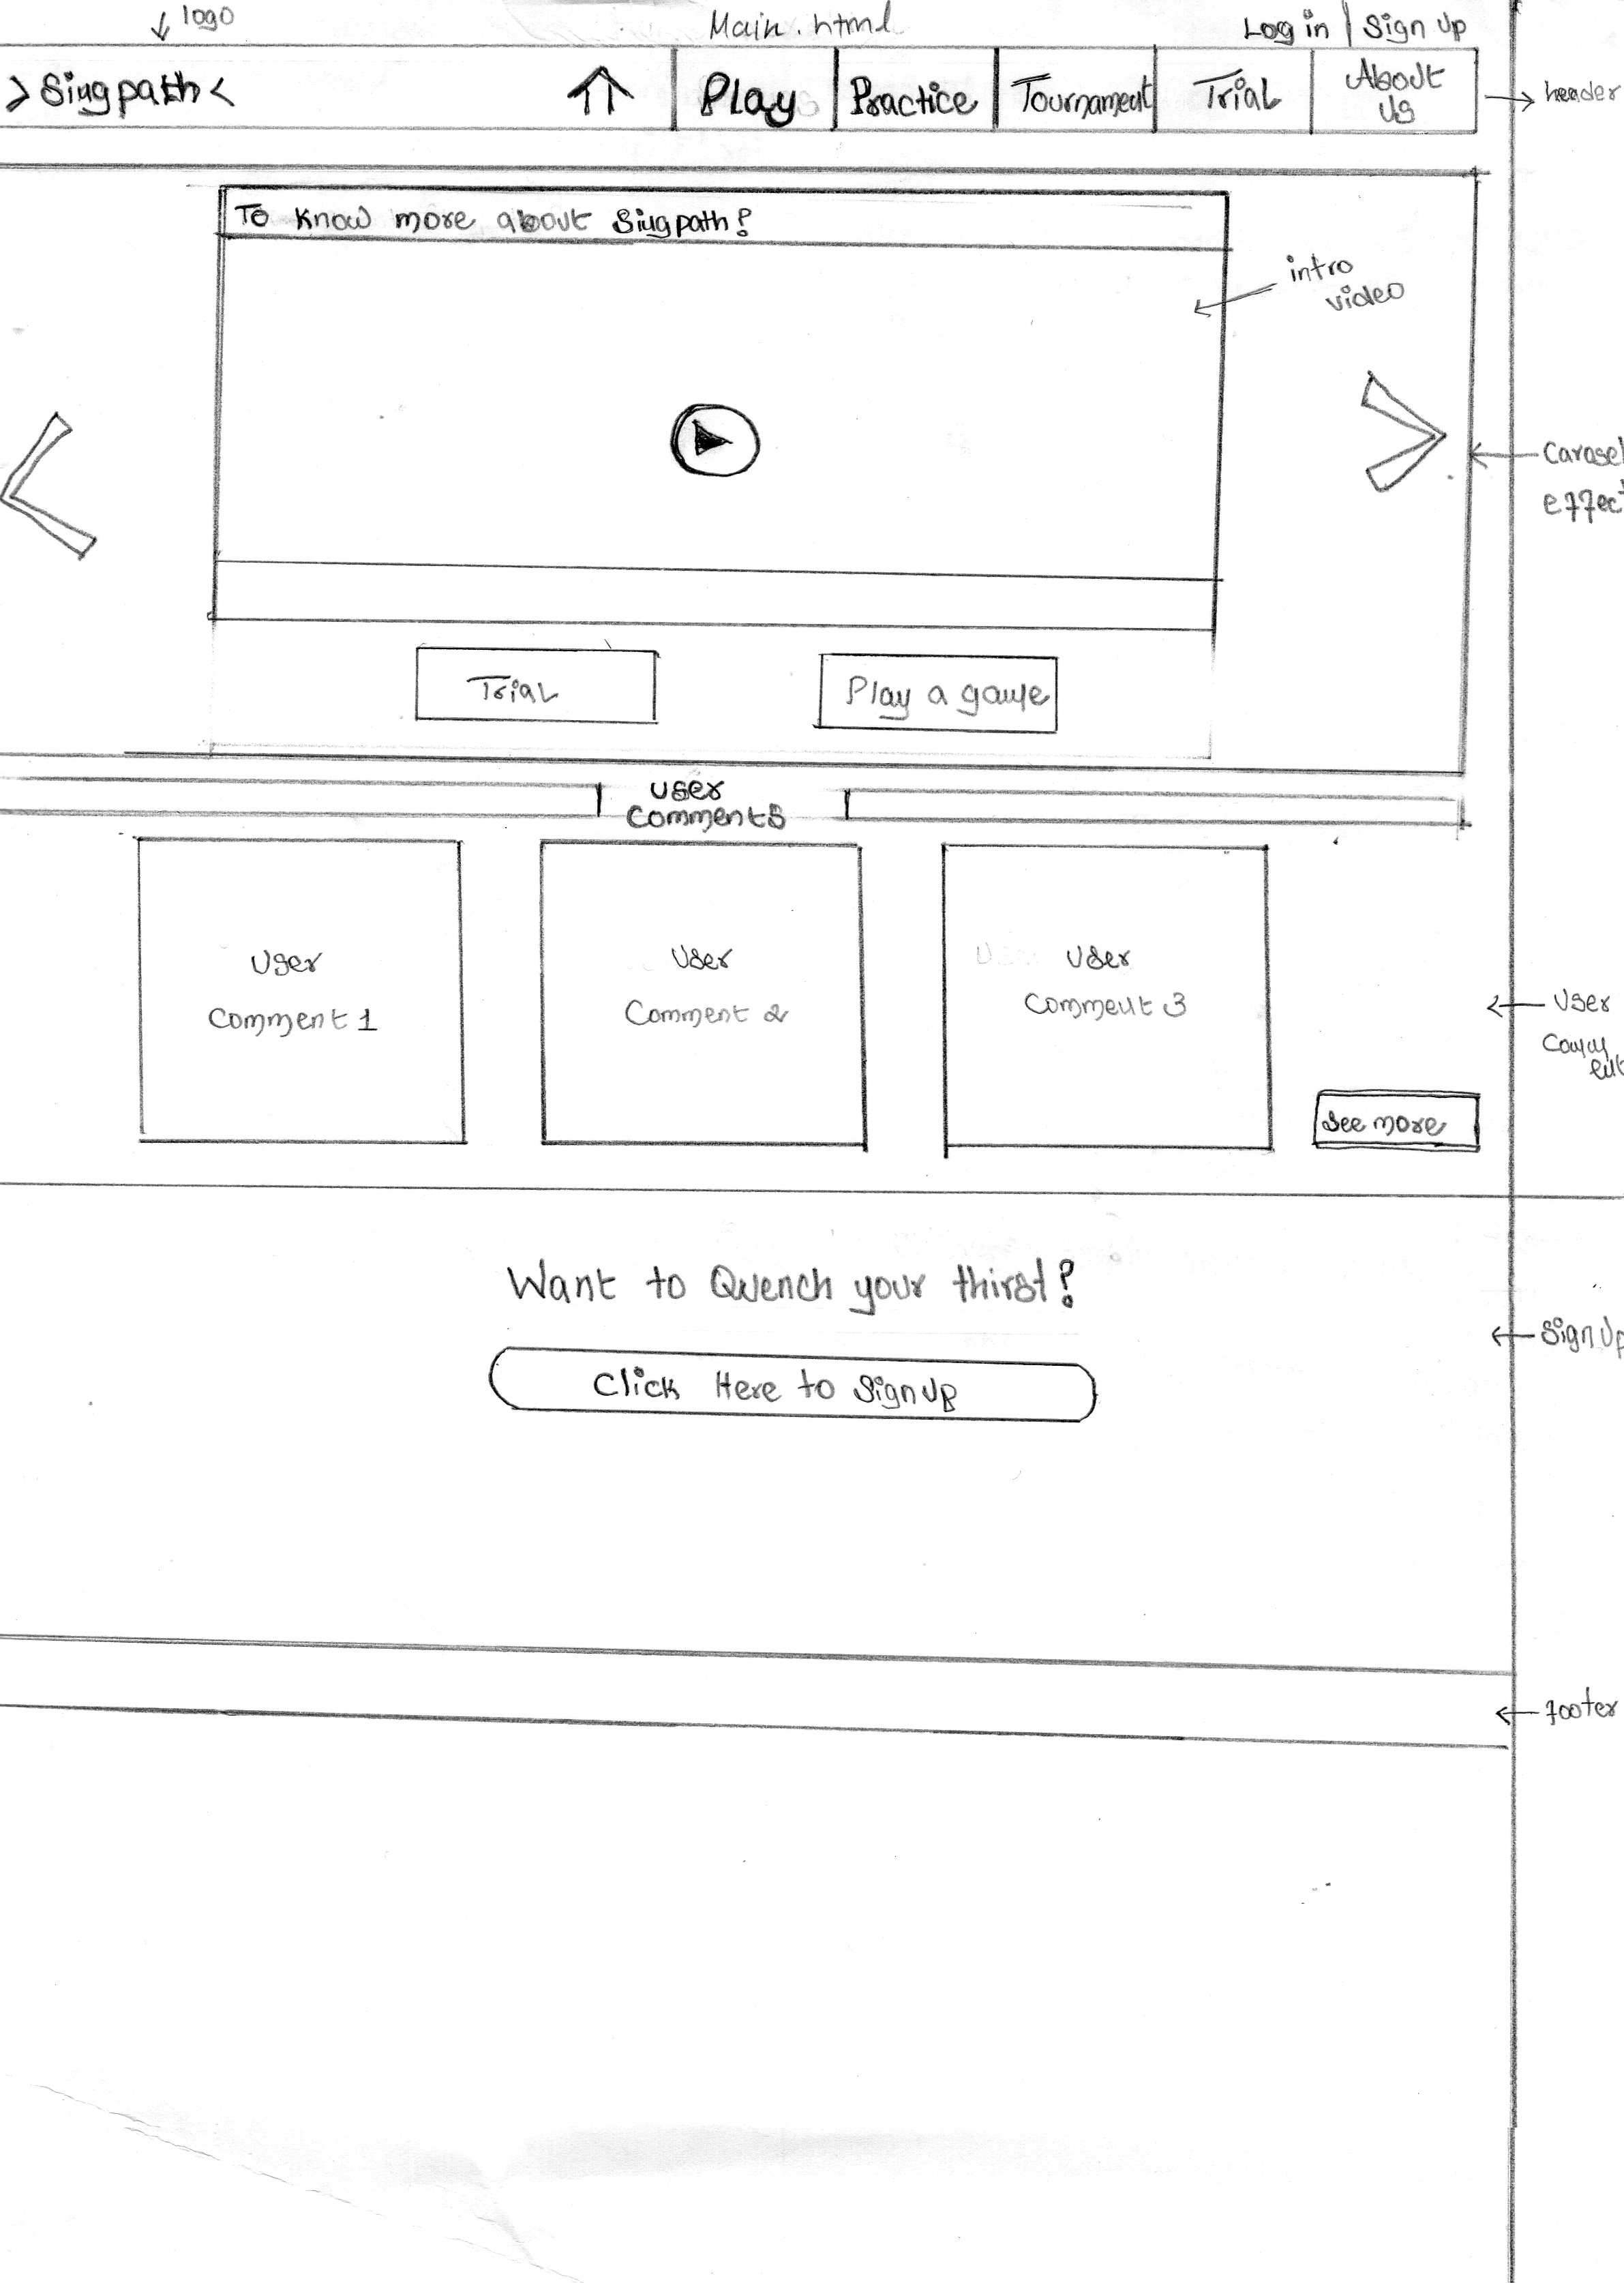 logo
Main.html
Log in | Sign Up
>Singpath<
Play
Practice
Tournament
Trial
About
Us
header
To Know more about Singpath?
intro
video
Carosel
effect
Trial
Play a game
User
Comments
User
Comment 1
User
Comment 2
User
Comment 3
User
Comm
ent
See more
Want to Quench your thirst?
Click Here to SignUp
SignUp
footer